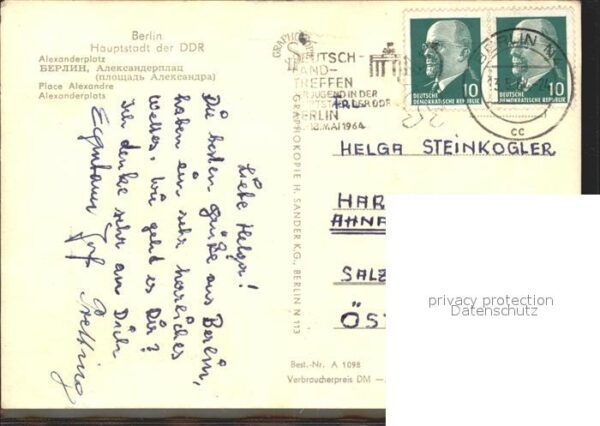 Berlin
Hauptstadt der DDR
Alexanderplatz
БЕРЛИН, Александерплац
(площадь Александра)
Place Alexandre
Alexanderplats
Liebe Helga!
Die besten Grüße aus Berlin,
haben ein sehr herrliches
Wetter, wie geht es Dir?
Ich denke sehr an Dich
GRAPHOKOPIE H. SANDER K.G., BERLIN N 113
DEUTSCH-
LAND-
TREFFEN
JUGEND IN DER
DER DDR
BERLIN
MAI 1964
10
DEUTSCHE
DEMOKRATISCHE REPUBLIK
10
DEUTSCHE
DEMOKRATISCHE REPUBLIK
BERLIN N
cc
HELGA STEINKOGLER
HAR
AHNA
SALZ
ÖST
privacy protection
Datenschutz
Best.-Nr. A 1098
Verbraucherpreis DM